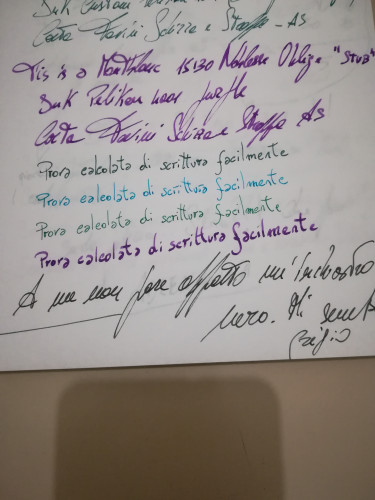 Carta Favini Schizza e Strappa - AS
Tis is a Montblanc 15130 Noblesse Oblige "Stub"
Ink Pelikan 4001 purple
Carta Favini Schizza e Strappa AS
Prova calcolata di scrittura facilmente
Prova calcolata di scrittura facilmente
Prova calcolata di scrittura facilmente
Prova calcolata di scrittura facilmente
A me non pare affatto un'inchiostro
nero. Mi sembra
grigio